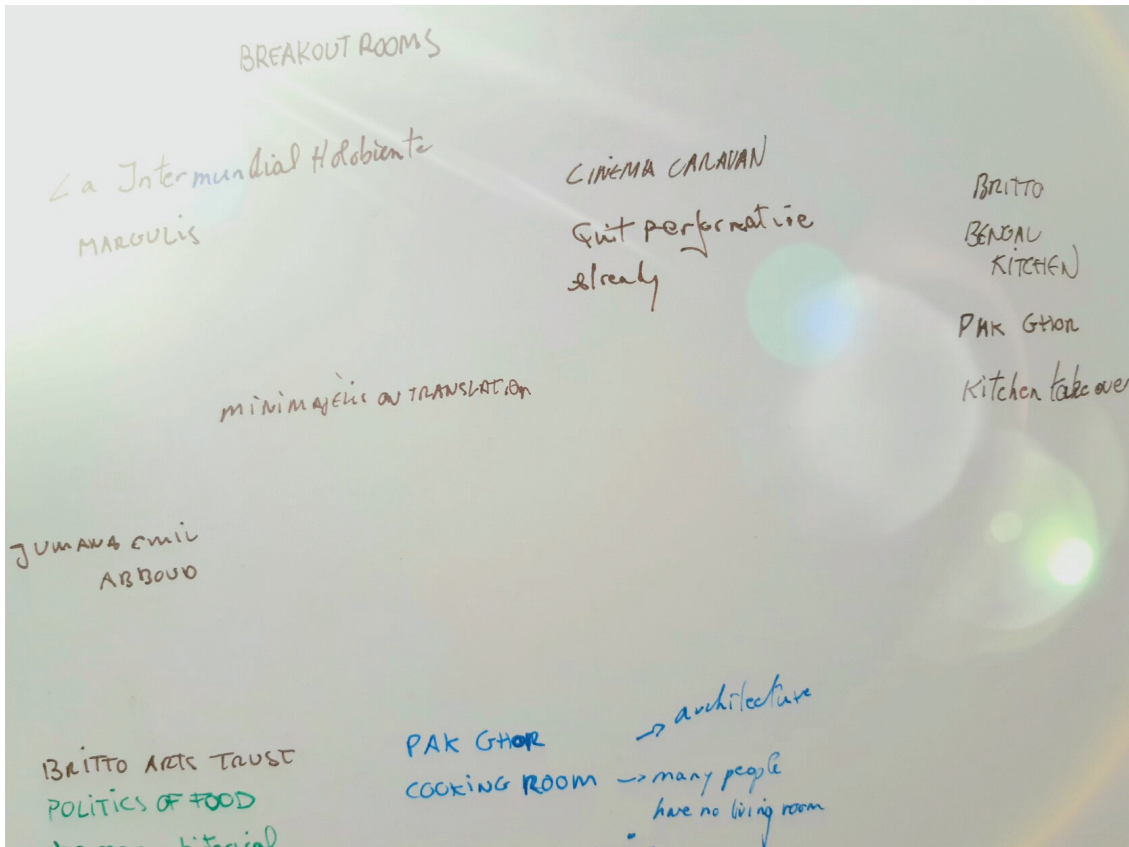 BREAKOUT ROOMS
La Intermundial Holobiente
MARGULIS
CINEMA CARAVAN
Quit performative
already
BRITTO
BENGAL
KITCHEN
PAK GHOR
Kitchen take over
MINIMAJELIS ON TRANSLATION
JUMANA EMIL
ABBOUD
BRITTO ARTS TRUST
POLITICS OF FOOD
PAK GHOR
COOKING ROOM
→ architecture
→ many people
have no living room